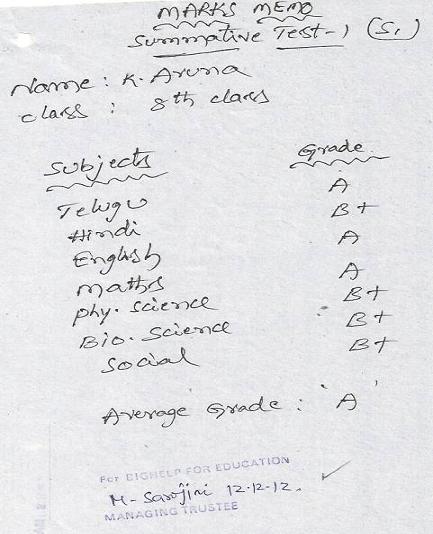 MARKS MEMO
Summative Test-1 (S1)
Name : K. Aruna
class : 8th class
Subjects Grade
Telugu A
Hindi B+
English A
maths A
phy. science B+
Bio. Science B+
Social B+
Average Grade : 'A'
For BIGHELP FOR EDUCATION
M. Sarojini 12.12.12.
MANAGING TRUSTEE